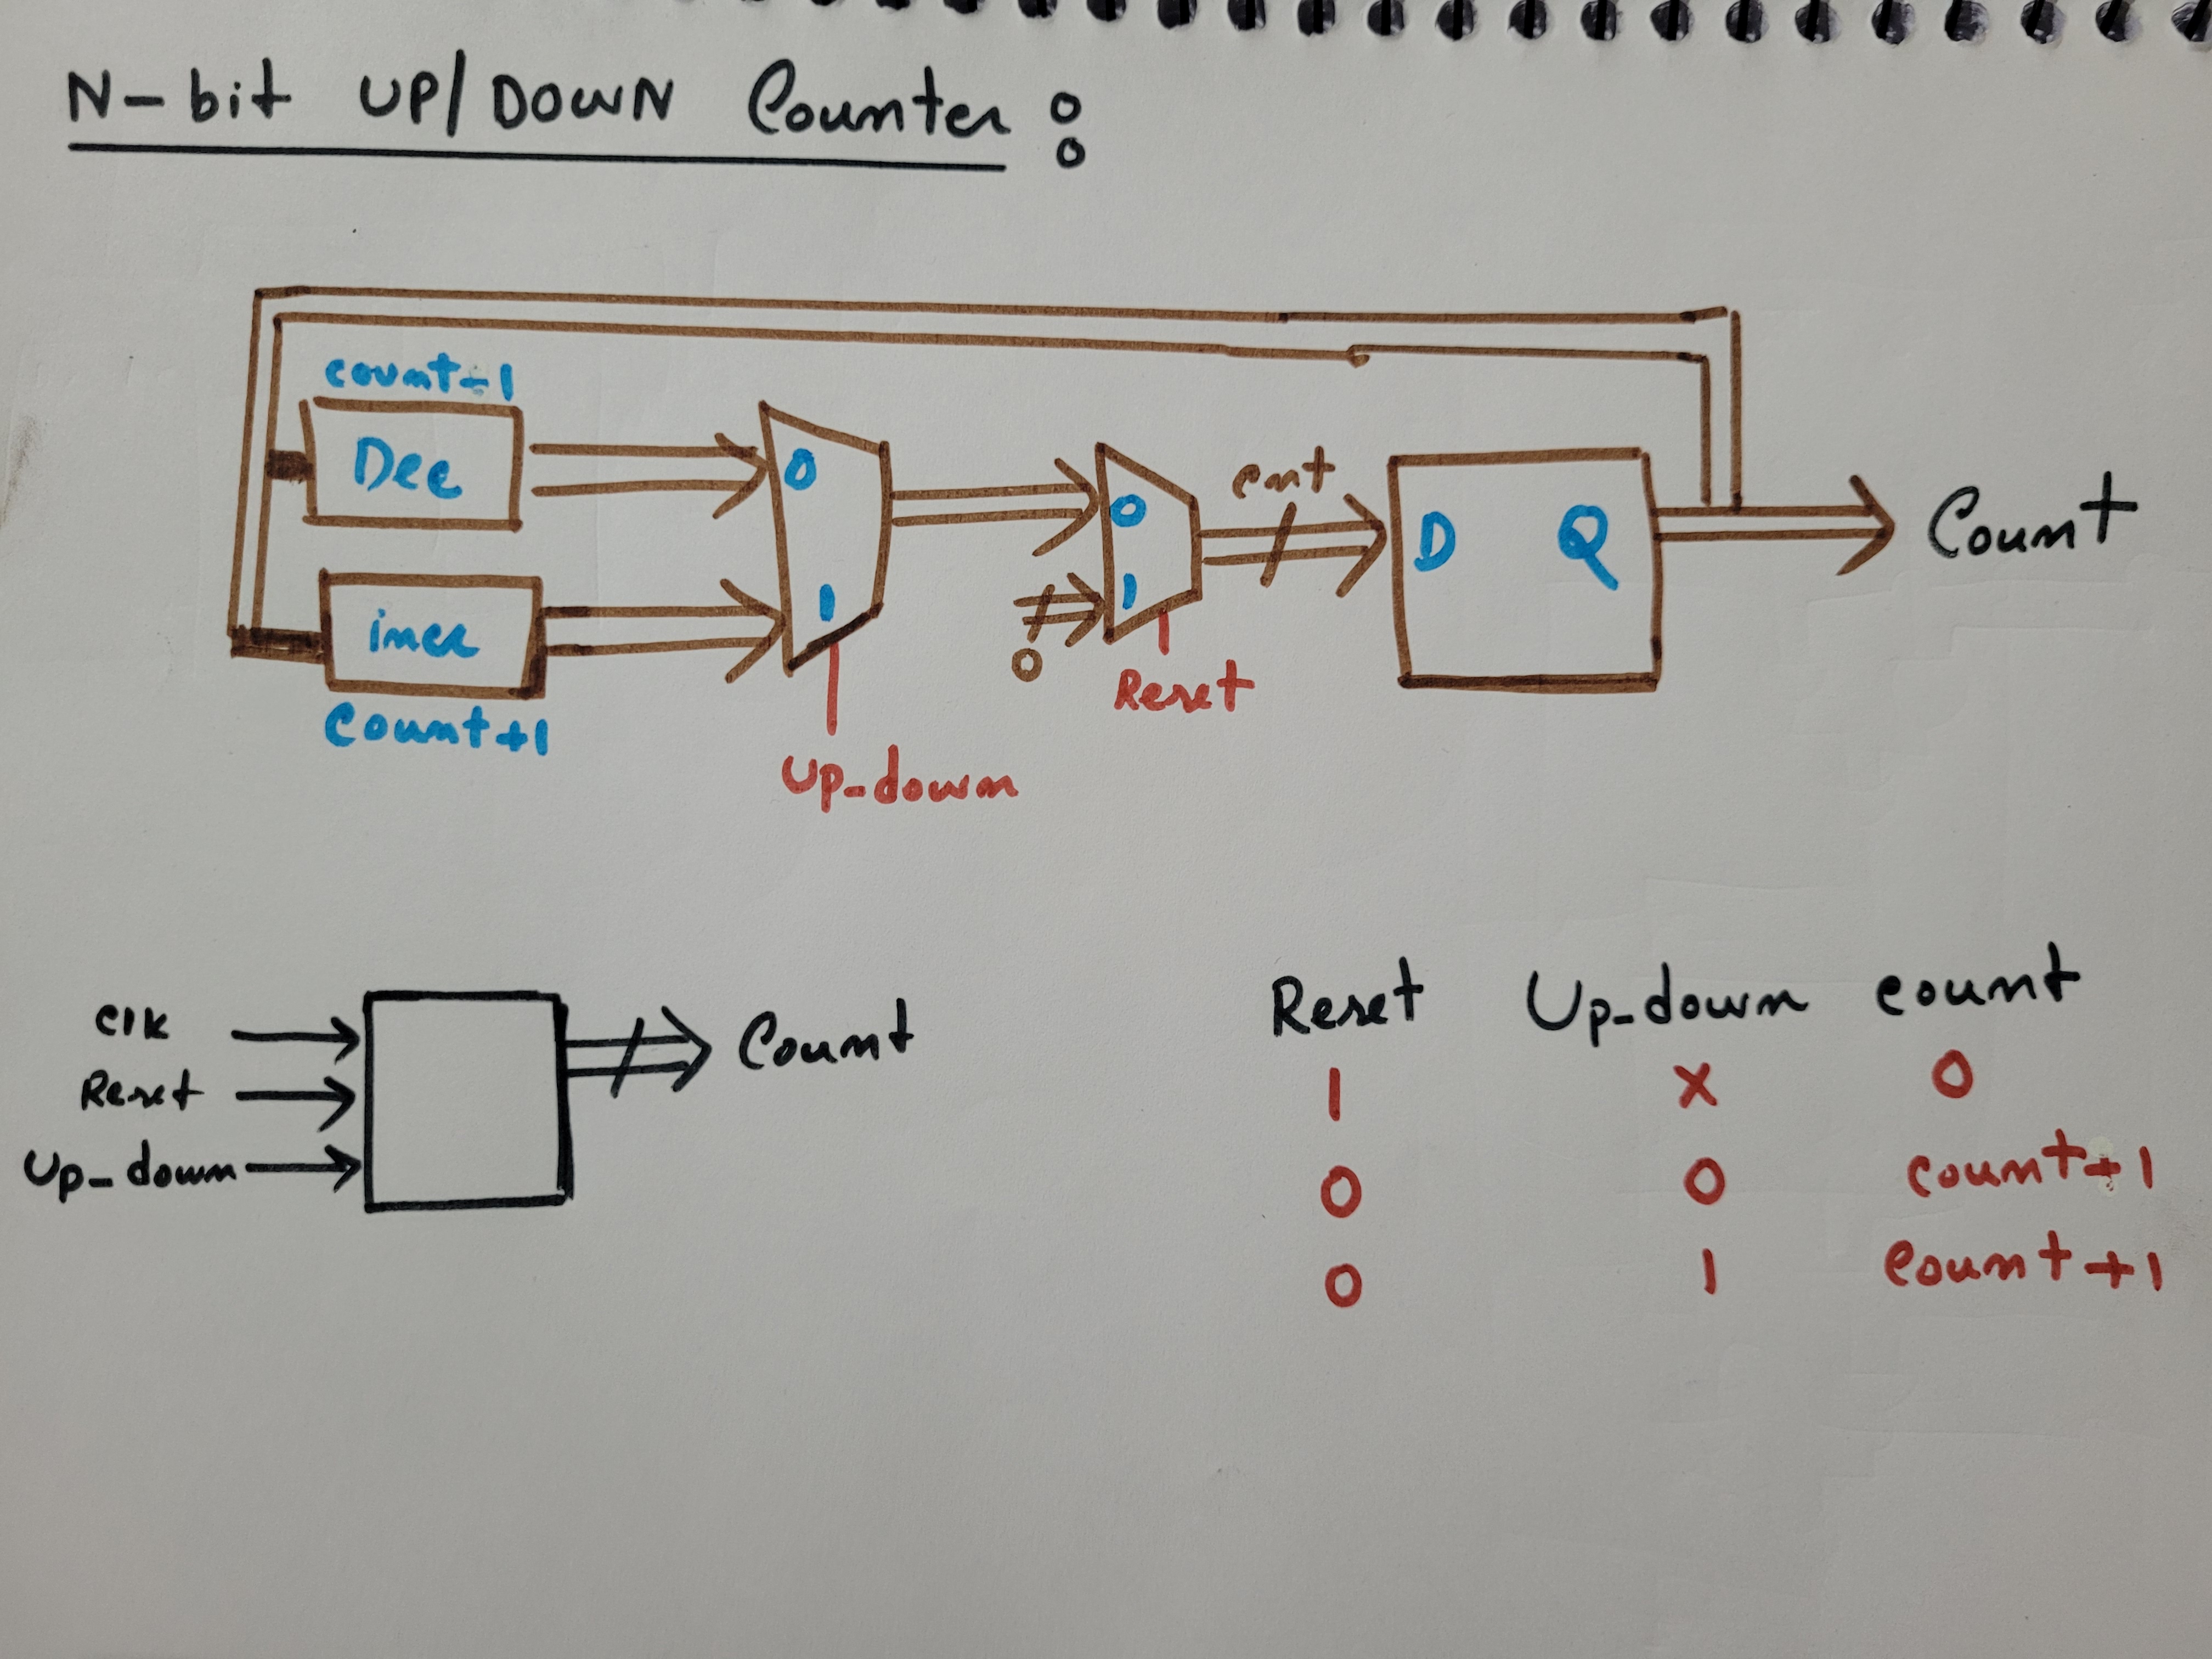 N-bit UP/DOWN Counter :
count-1
Dec
0
0
cnt
D Q
Count
incr
1
1
0
Reset
Count+1
Up-down
Clk
Reset
Up-down
Count
Reset Up-down count
1 X 0
0 0 count+1
0 1 count+1